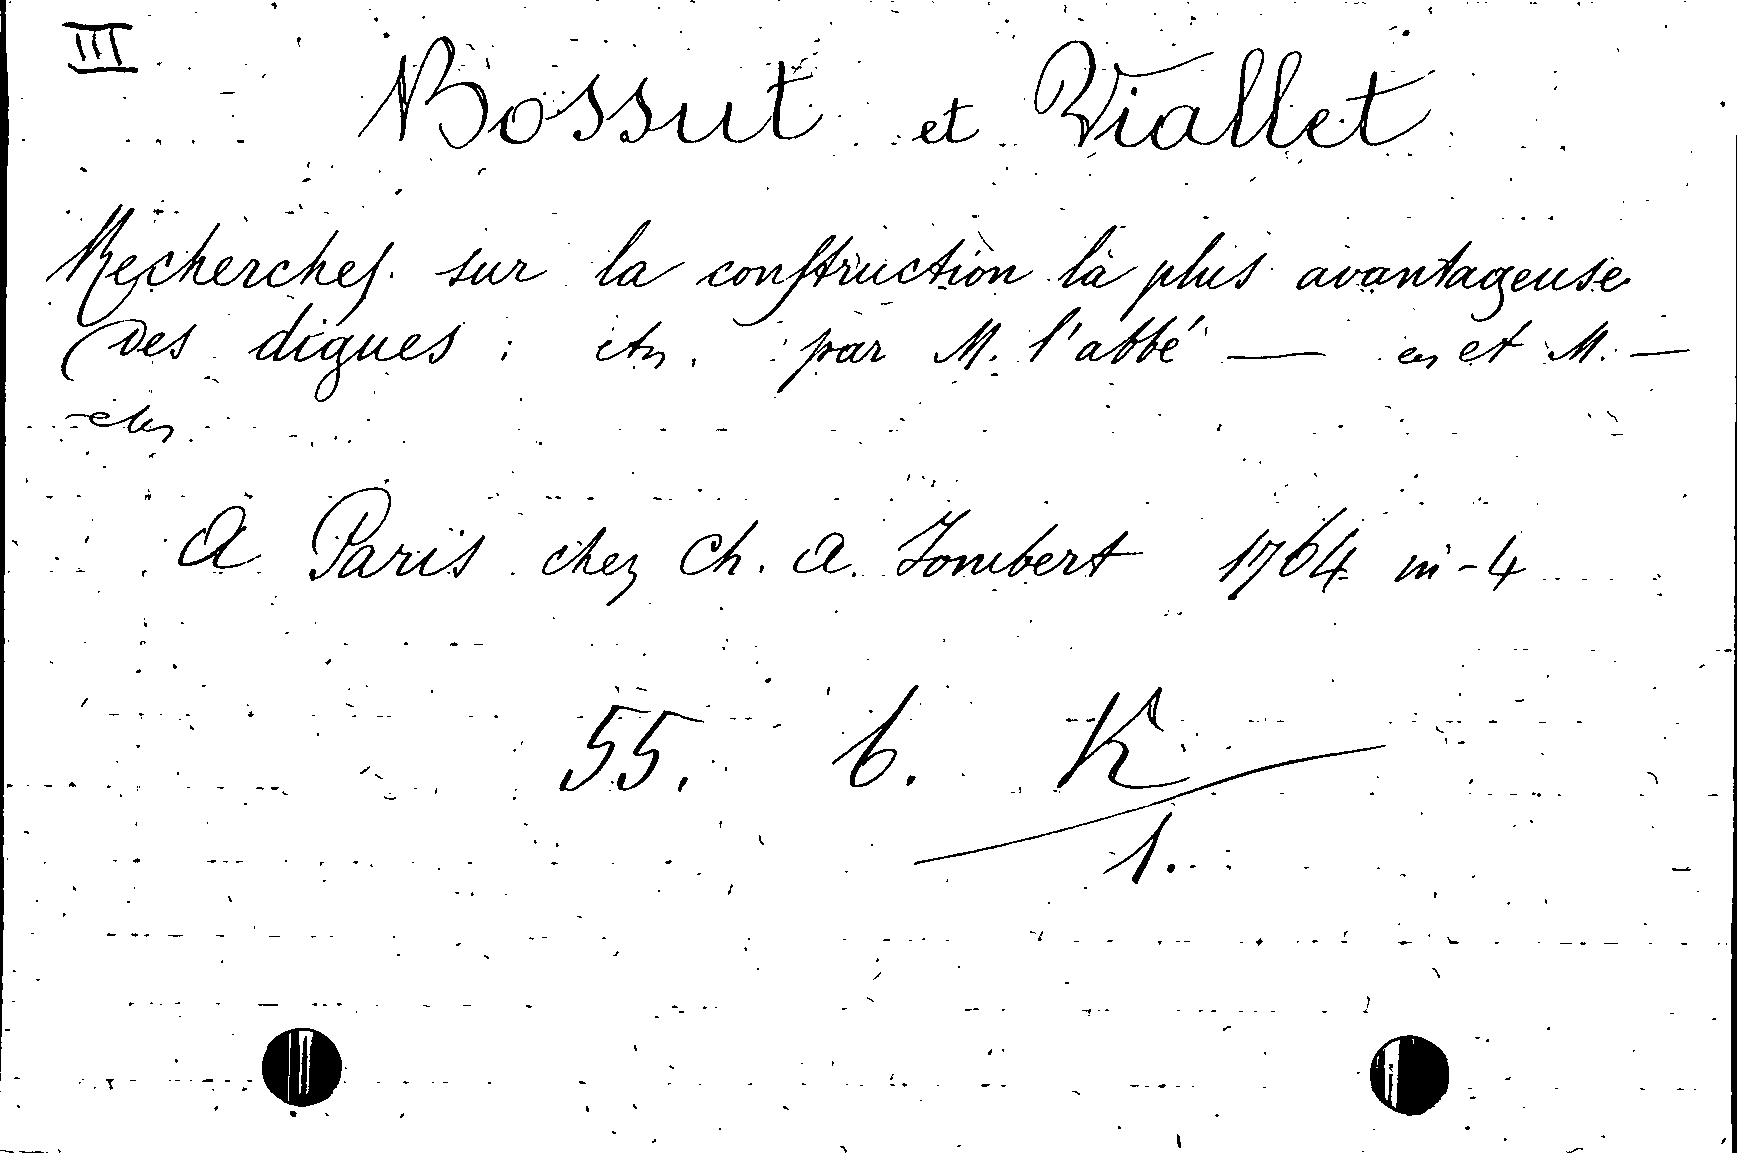 III
Bossut et Viallet
Recherches sur la construction la plus avantageuse
des digues : etc. par M. l'abbé — etc et M. —
etc
A Paris chez Ch. A. Jombert 1764 in-4
55. b. K
1.